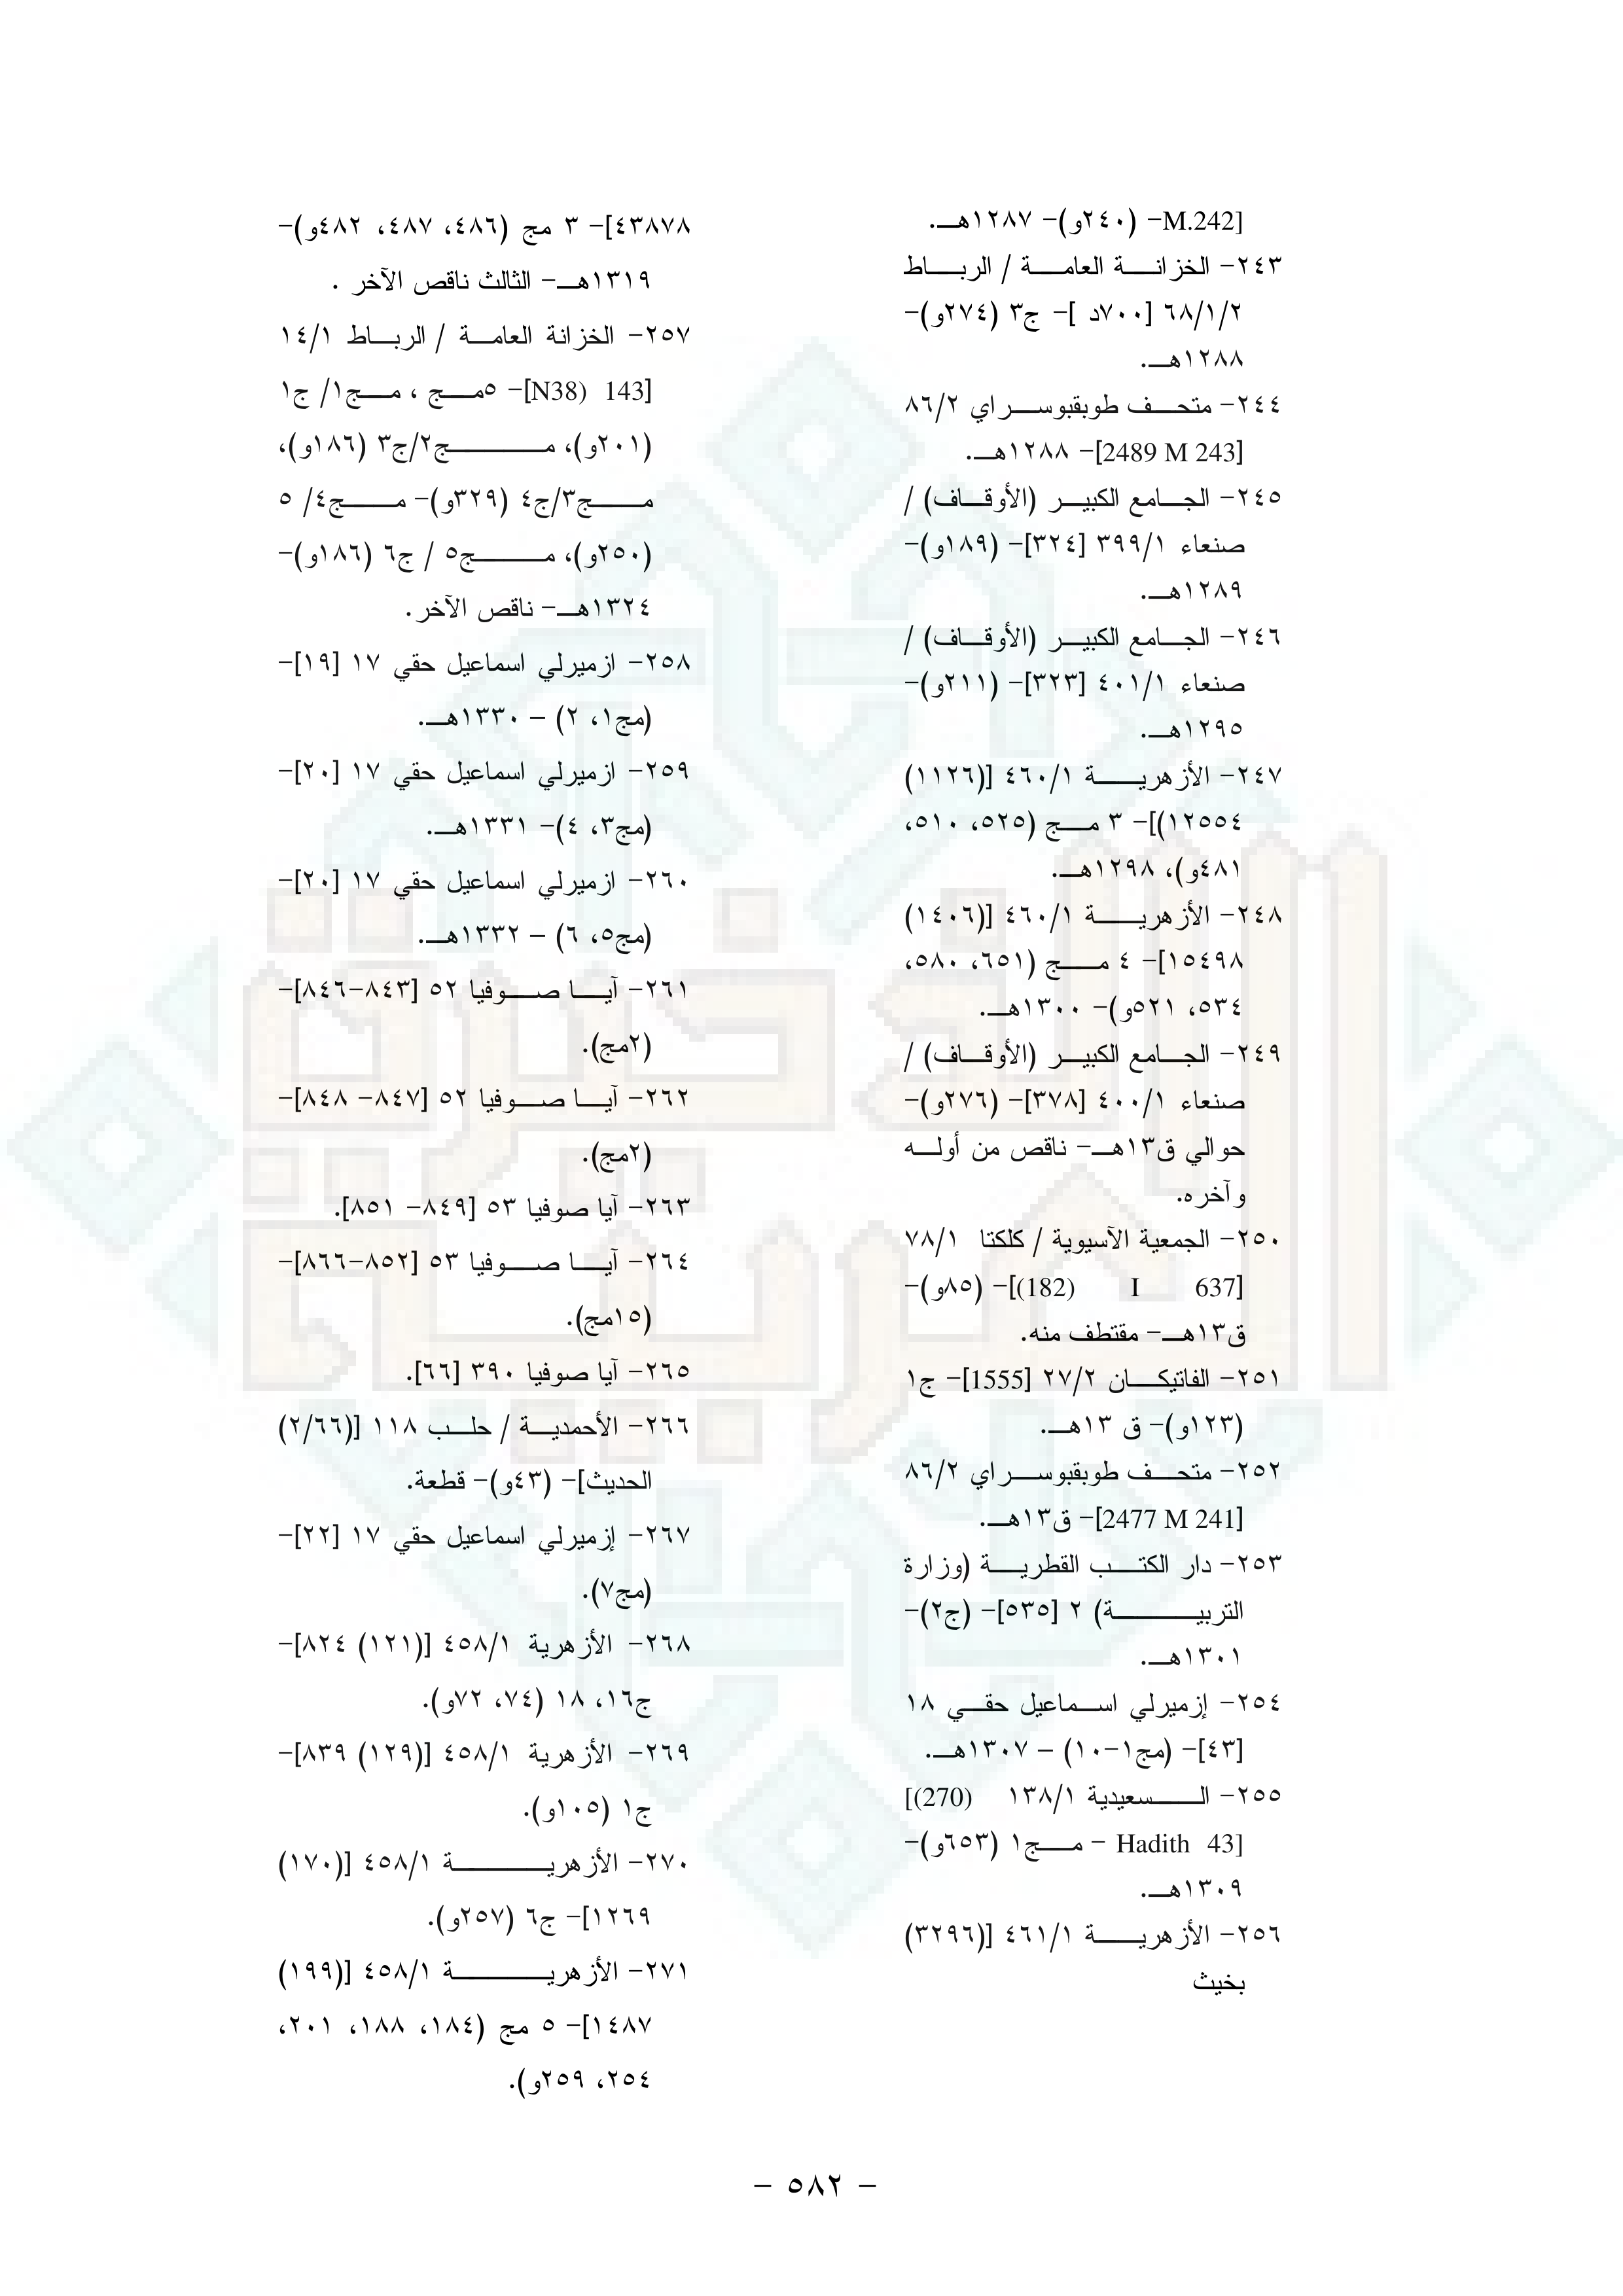 M.242]- (٢٤٠و)- ١٢٨٧هـ.
٢٤٣- الخزانة العامة / الرباط
٦٨/١/٢ [٧٠٠د ]- ج٣ (٢٧٤و)-
١٢٨٨هـ.
٢٤٤- متحف طوبقبوسراي ٨٦/٢
[2489 M 243]- ١٢٨٨هـ.
٢٤٥- الجامع الكبير (الأوقاف) /
صنعاء ٣٩٩/١ [٣٢٤]- (١٨٩و)-
١٢٨٩هـ.
٢٤٦- الجامع الكبير (الأوقاف) /
صنعاء ٤٠١/١ [٣٢٣]- (٢١١و)-
١٢٩٥هـ.
٢٤٧- الأزهرية ٤٦٠/١ [(١١٢٦)
١٢٥٥٤)]- ٣ مج (٥٢٥، ٥١٠،
٤٨١و)، ١٢٩٨هـ.
٢٤٨- الأزهرية ٤٦٠/١ [(١٤٠٦)
١٥٤٩٨]- ٤ مج (٦٥١، ٥٨٠،
٥٣٤، ٥٢١و)- ١٣٠٠هـ.
٢٤٩- الجامع الكبير (الأوقاف) /
صنعاء ٤٠٠/١ [٣٧٨]- (٢٧٦و)-
حوالي ق١٣هـ- ناقص من أوله
وآخره.
٢٥٠- الجمعية الآسيوية / كلكتا ٧٨/١
[637 I (182)]- (٨٥و)-
ق١٣هـ- مقتطف منه.
٢٥١- الفاتيكان ٢٧/٢ [1555]- ج١
(١٢٣و)- ق ١٣هـ.
٢٥٢- متحف طوبقبوسراي ٨٦/٢
[2477 M 241]- ق١٣هـ.
٢٥٣- دار الكتب القطرية (وزارة
التربية) ٢ [٥٣٥]- (ج٢)-
١٣٠١هـ.
٢٥٤- إزميرلي اسماعيل حقي ١٨
[٤٣]- (مج١-١٠) - ١٣٠٧هـ.
٢٥٥- السعيدية ١٣٨/١ [(270)
Hadith 43] - مج١ (٦٥٣و)-
١٣٠٩هـ.
٢٥٦- الأزهرية ٤٦١/١ [(٣٢٩٦)
بخيث
٤٣٨٧٨]- ٣ مج (٤٨٦، ٤٨٧، ٤٨٢و)-
١٣١٩هـ- الثالث ناقص الآخر .
٢٥٧- الخزانة العامة / الرباط ١٤/١
[143 (N38]- ٥مج ، مج١/ ج١
(٢٠١و)، مج٢/ج٣ (١٨٦و)،
مج٣/ج٤ (٣٢٩و)- مج٤/ ٥
(٢٥٠و)، مج٥ / ج٦ (١٨٦و)-
١٣٢٤هـ- ناقص الآخر.
٢٥٨- ازميرلي اسماعيل حقي ١٧ [١٩]-
(مج١، ٢) - ١٣٣٠هـ.
٢٥٩- ازميرلي اسماعيل حقي ١٧ [٢٠]-
(مج٣، ٤)- ١٣٣١هـ.
٢٦٠- ازميرلي اسماعيل حقي ١٧ [٢٠]-
(مج٥، ٦) - ١٣٣٢هـ.
٢٦١- آيا صوفيا ٥٢ [٨٤٣-٨٤٦]-
(٢مج).
٢٦٢- آيا صوفيا ٥٢ [٨٤٧- ٨٤٨]-
(٢مج).
٢٦٣- آيا صوفيا ٥٣ [٨٤٩- ٨٥١].
٢٦٤- آيا صوفيا ٥٣ [٨٥٢-٨٦٦]-
(١٥مج).
٢٦٥- آيا صوفيا ٣٩٠ [٦٦].
٢٦٦- الأحمدية / حلب ١١٨ [(٢/٦٦)
الحديث]- (٤٣و)- قطعة.
٢٦٧- إزميرلي اسماعيل حقي ١٧ [٢٢]-
(مج٧).
٢٦٨- الأزهرية ٤٥٨/١ [(١٢١) ٨٢٤]-
ج١٦، ١٨ (٧٤، ٧٢و).
٢٦٩- الأزهرية ٤٥٨/١ [(١٢٩) ٨٣٩]-
ج١ (١٠٥و).
٢٧٠- الأزهرية ٤٥٨/١ [(١٧٠)
١٢٦٩]- ج٦ (٢٥٧و).
٢٧١- الأزهرية ٤٥٨/١ [(١٩٩)
١٤٨٧]- ٥ مج (١٨٤، ١٨٨، ٢٠١،
٢٥٤، ٢٥٩و).
- ٥٨٢ -
الذخيرة
العربية